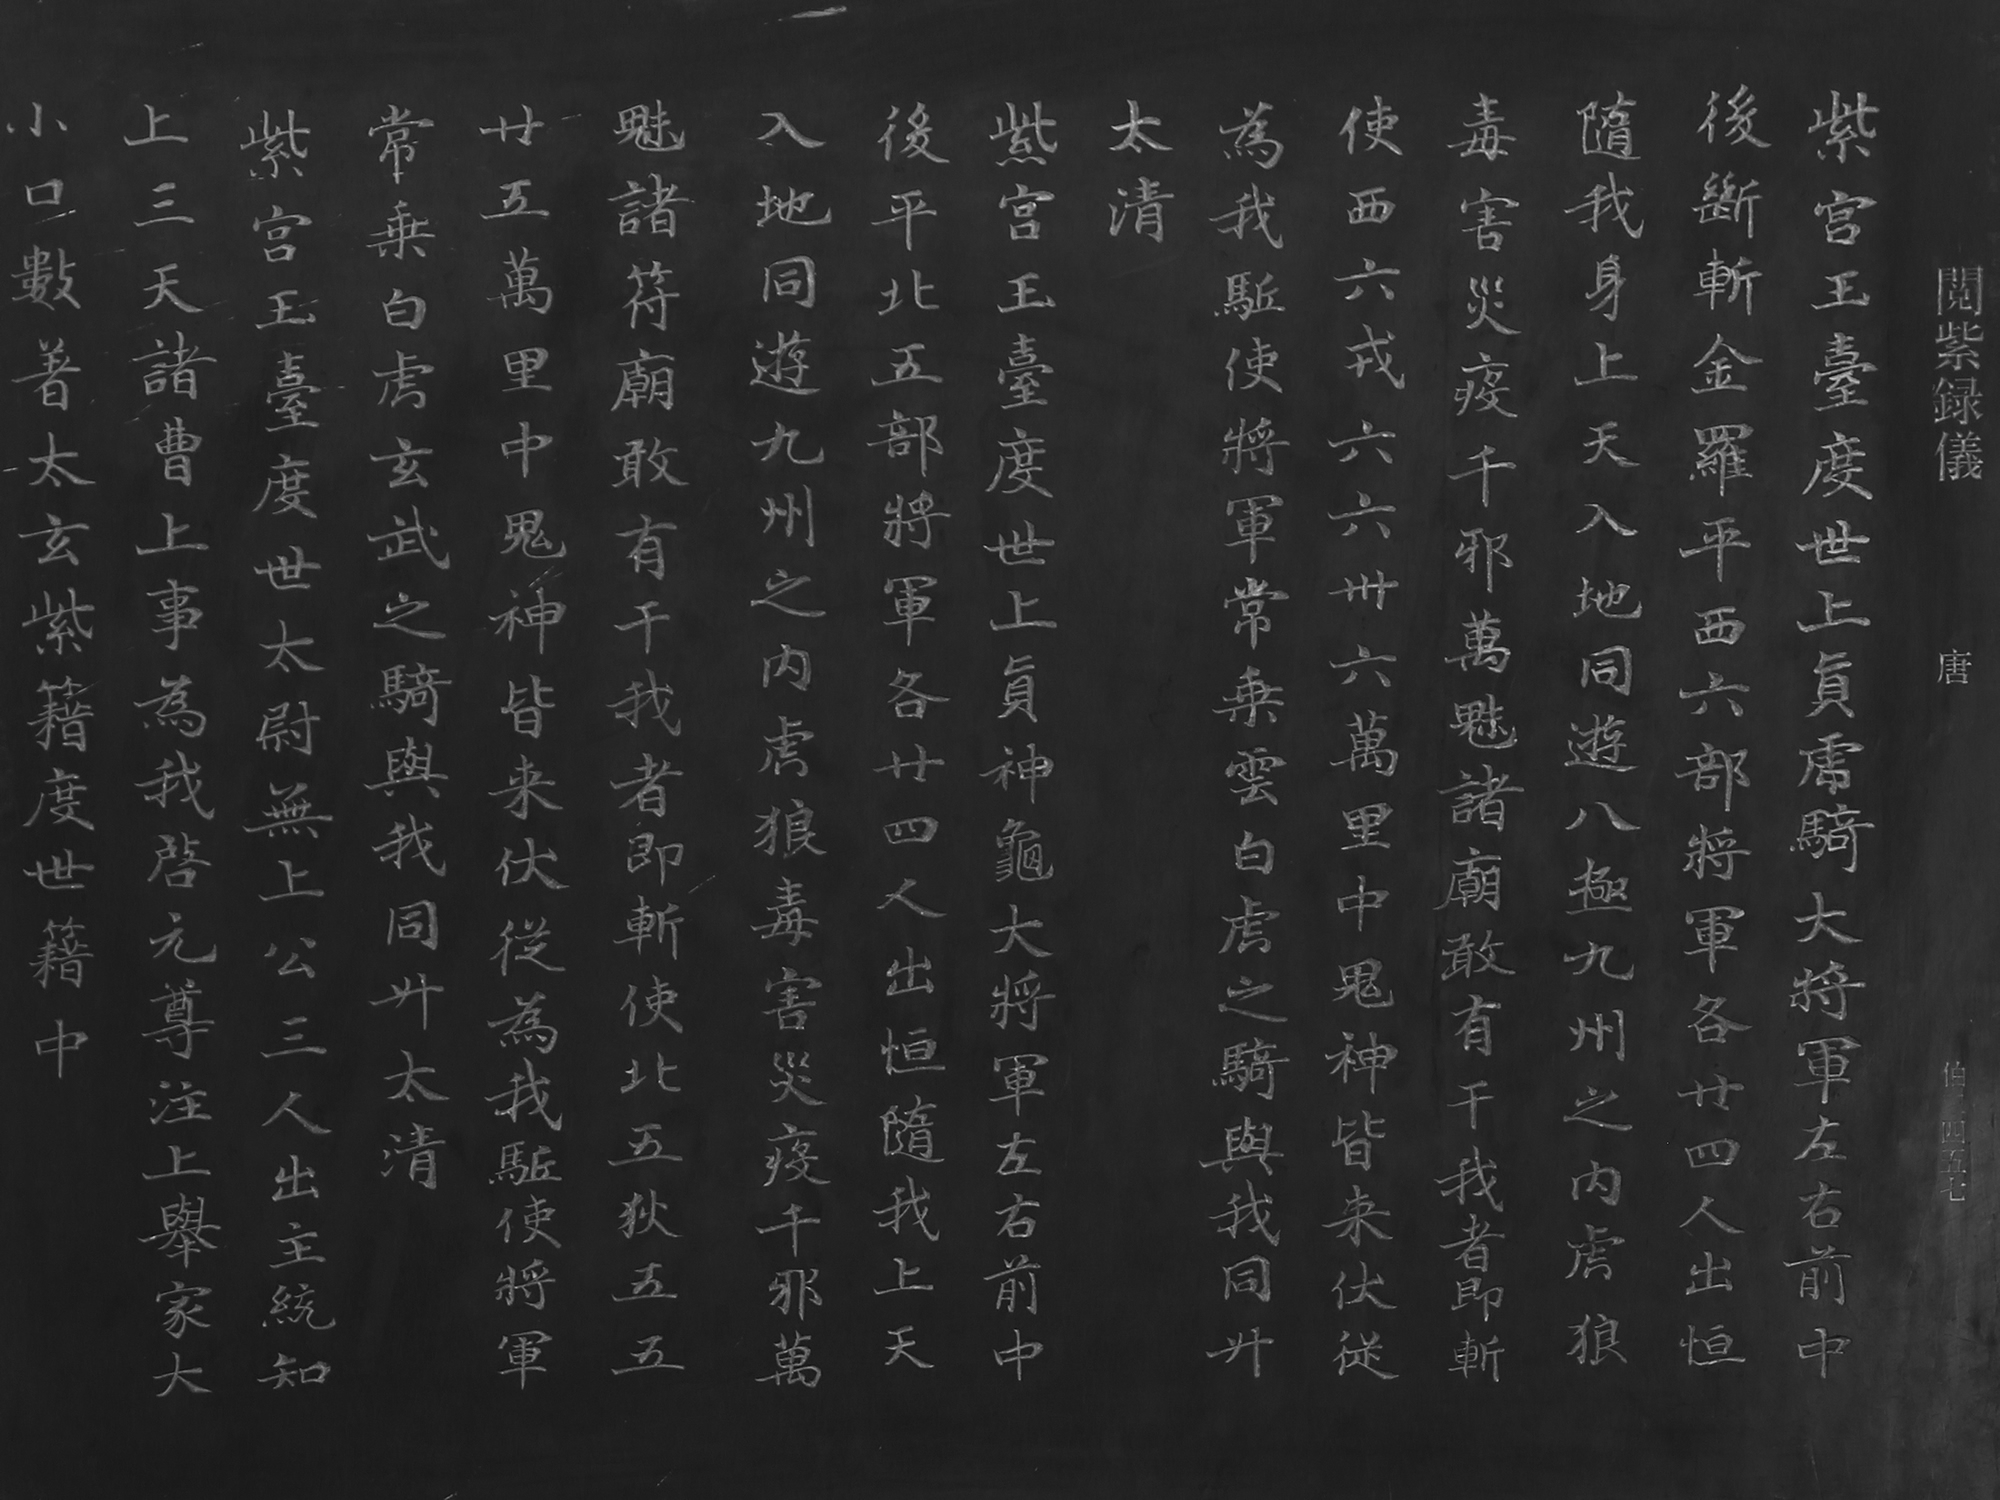 閲紫録儀 唐 伯二四五七
紫宫玉臺度世上真虎騎大將軍左右前中
後斷斬金羅平西六部將軍各廿四人出恒
隨我身上天入地同遊八極九州之内虎狼
毒害災疫千邪萬魅諸廟敢有干我者即斬
使西六戎六六卅六萬里中鬼神皆来伏從
為我駈使將軍常乗雲白虎之騎與我同升
太清
紫宫玉臺度世上真神龜大將軍左右前中
後平北五部將軍各廿四人出恒隨我上天
入地同遊九州之内虎狼毒害災疫千邪萬
魅諸符廟敢有干我者即斬使北五狄五五
廿五萬里中鬼神皆来伏從為我駈使將軍
常乗白虎玄武之騎與我同升太清
紫宫玉臺度世太尉無上公三人出主統知
上三天諸曹上事為我啓元尊注上舉家大
小口數著太玄紫籍度世籍中